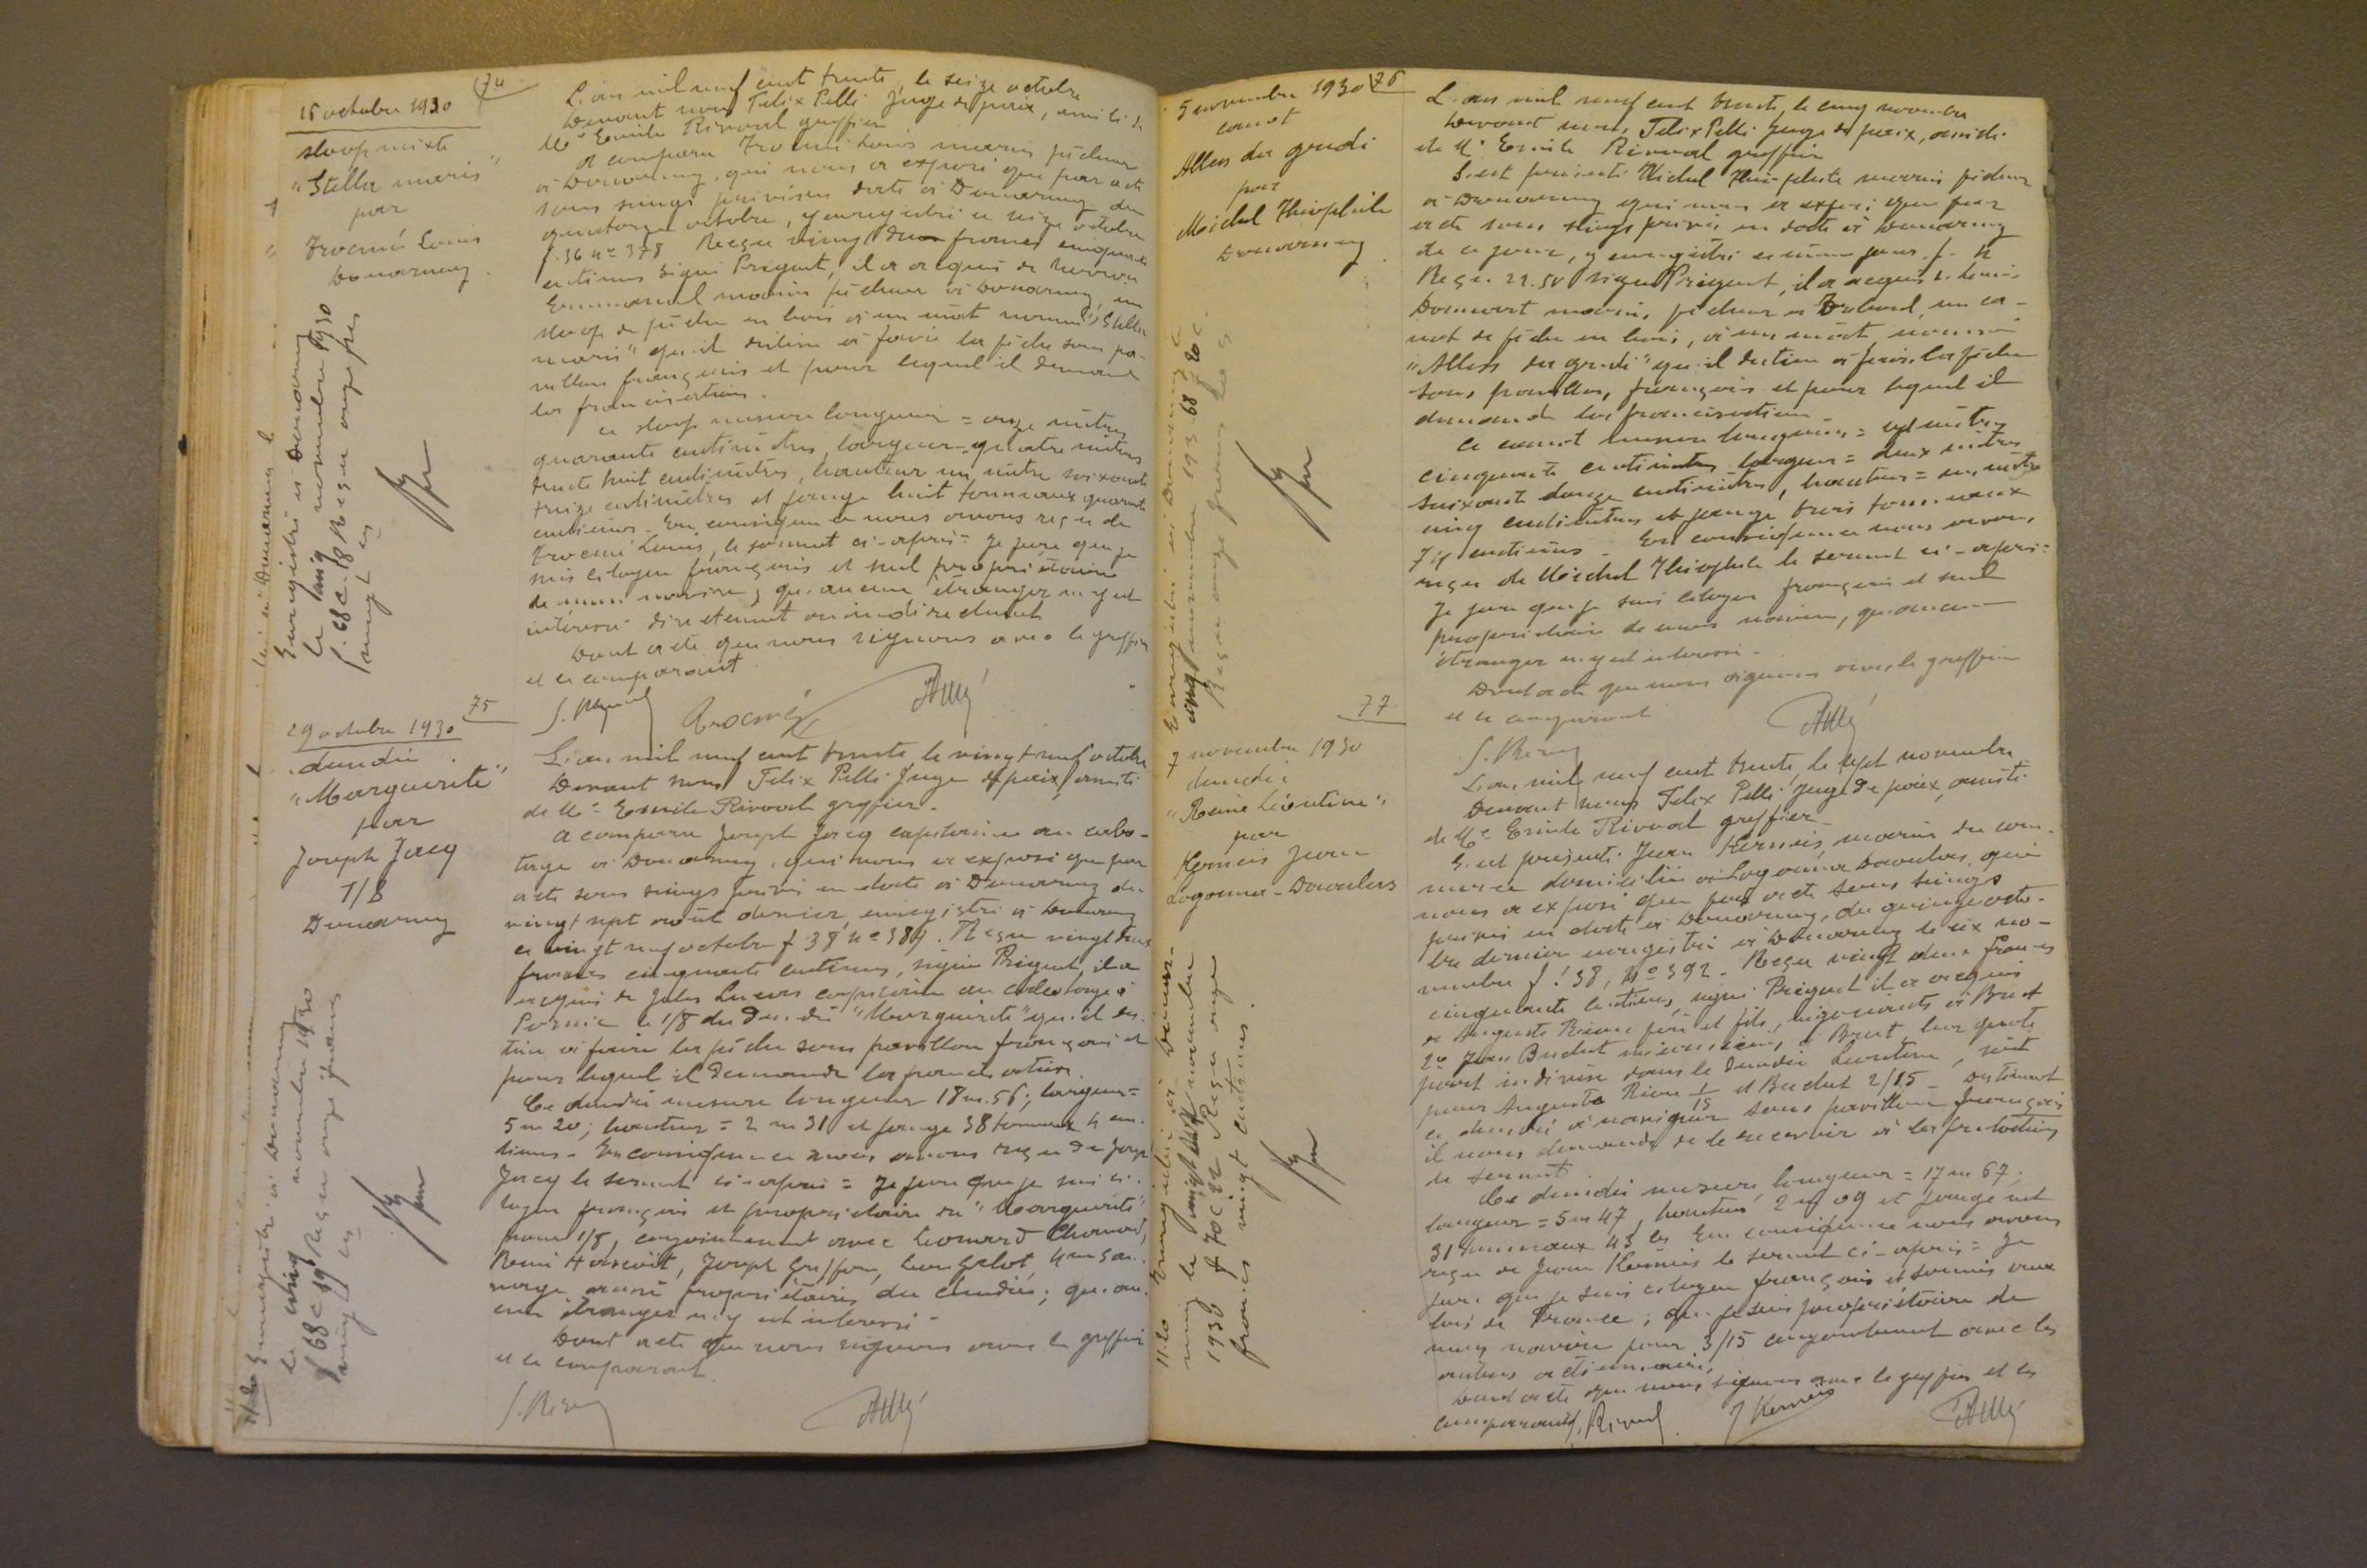 74
16 octobre 1930
sloop mixte
"Stella maris"
par
Trocmé Louis
Douarnenez.
Enregistré à Douarnenez
le cinq novembre 1930
f. 68 c. 18 Reçu onze frs
vingt cs
L'an mil neuf cent trente, le seize octobre
Devant nous Félix Pelli Juge de paix, assisté de
Me Emile Rivoal greffier
a comparu Trocmé Louis marin pêcheur
à Douarnenez, qui nous a exposé que par acte
sous seings privés en date à Douarnenez du
quatorze octobre, y enregistré le seize octobre
f. 36 no 378 Reçu vingt deux francs cinquante
centimes signé Prigent, il a acquis de
Emmanuel marin pêcheur à Douarnenez, un
sloop de pêche en bois à un mât nommé "Stella
maris" qu'il destine à faire la pêche sous pa-
villon français et pour lequel il demande
la francisation.
Ce sloop mesure longueur = onze mètres
quarante centimètres, largeur = quatre mètres
trente huit centimètres, hauteur un mètre soixante
treize centimètres et jauge huit tonneaux quarante
centièmes. En conséquence nous avons reçu de
Trocmé Louis, le serment ci-après = Je jure que je
suis citoyen français et seul propriétaire
de mon navire, qu'aucun étranger n'y est
intéressé directement ou indirectement
Dont acte que nous signons avec le greffier
et le comparant
Trocmé
75
29 octobre 1930
dundée
"Marguerite"
par
Joseph Jacq
1/8
Douarnenez
Enregistré à Douarnenez
le cinq novembre 1930
f 68 c 19 Reçu onze francs
vingt cs
11.20
L'an mil neuf cent trente, le vingt neuf octobre
Devant nous Félix Pelli Juge de paix, assisté
de Me Emile Rivoal greffier.
a comparu Joseph Jacq capitaine au cabo-
tage à Douarnenez, qui nous a exposé que par
acte sous seings privés en date à Douarnenez du
vingt sept août dernier, enregistré à Douarnenez
le vingt neuf octobre f 38, no 384. Reçu vingt deux
francs cinquante centimes, signé Prigent, il a
acquis de Jules capitaine au cabotage à
Pornic le 1/8 du dundée "Marguerite" qu'il des-
tine à faire la pêche sous pavillon français et
pour lequel il demande la francisation.
Ce dundée mesure longueur 18 m. 56; largeur =
5 m 20; hauteur = 2 m 31 et jauge 38 tonneaux 4 cen-
tièmes. En conséquence nous avons reçu de Joseph
Jacq le serment ci-après = Je jure que je suis ci-
toyen français et propriétaire du "Marguerite"
pour 1/8, conjointement avec Léonard
Joseph
aussi propriétaires du dundée; qu'au-
cun étranger n'y est intéressé.
Dont acte que nous signons avec le greffier
et le comparant
76
5 novembre 1930
canot
Allons du gradi
par
Michel Théophile
Douarnenez
Enregistré à Douarnenez le
cinq novembre 193 f 68 c 20
Reçu onze francs 20 c
L'an mil neuf cent trente, le cinq novembre
Devant nous, Félix Pelli Juge de paix, assisté
de Me Emile Rivoal greffier
S'est présenté Michel Théophile marin pêcheur
à Douarnenez qui nous a exposé que par
acte sous seings privés en date à Douarnenez
de ce jour, y enregistré ce même jour. f. no
Reçu 22.50 signé Prigent, il a acquis de Louis
marin pêcheur à Tréboul, un ca-
not de pêche en bois, à un mât, nommé
"Allons du gradi" qu'il destine à faire la pêche
sous pavillon français et pour lequel il
demande la francisation.
Ce canot mesure longueur = sept mètres
cinquante centimètres largeur = deux mètres
soixante douze centimètres, hauteur = un mètre
cinq centimètres et jauge trois tonneaux
centièmes. En conséquence nous avons
reçu de Michel Théophile le serment ci-après =
Je jure que je suis citoyen français et seul
propriétaire de mon navire, qu'aucun
étranger n'y est intéressé.
Dont acte que nous signons avec le greffier
et le comparant
77
7 novembre 1930
dundée
"Reine Léontine"
par
Kernéis Jean
Logonna-Daoulas
11.20 Enregistré à Douar-
nenez le novembre
1930 f 70 c 22 Reçu onze
francs vingt centimes.
L'an mil neuf cent trente, le sept novembre
Devant nous Félix Pelli Juge de paix, assisté
de Me Emile Rivoal greffier
S'est présenté Jean Kernéis, marin du com-
merce domicilié à Logonna Daoulas, qui
nous a exposé que par acte sous seings
privés en date à Douarnenez, du quinze octo-
bre dernier enregistré à Douarnenez le six no-
vembre f. 38, no 392. Reçu vingt deux francs
cinquante centimes, signé Prigent il a acquis
de Auguste Riou père et fils, négociants à Brest
2o Jean Buchet mécanicien, à Brest, leur quote
part indivise dans le dundée Léontine, soit
pour Auguste Riou 1/15 et Buchet 2/15. Destinant
ce dundée à naviguer sous pavillon français
il nous demande de le recevoir à la prestation
de serment.
Ce dundée mesure longueur = 17 m 67;
largeur = 5 m 47, hauteur 2 m 09 et jauge net
31 tonneaux 43 cs En conséquence nous avons
reçu de Jean Kernéis le serment ci-après = Je
jure que je suis citoyen français et soumis aux
lois de France; que je suis propriétaire de
mon navire pour 3/15 conjointement avec les
autres actionnaires.
Dont acte que nous signons avec le greffier et le
comparant
J Kernéis